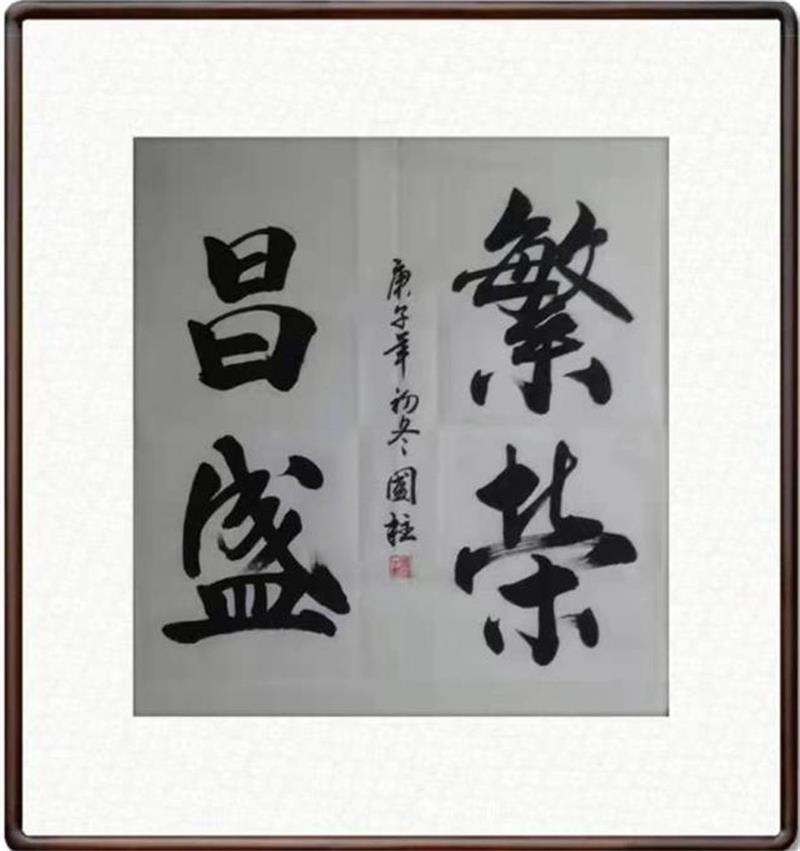 繁荣
昌盛
庚子年初冬国柱